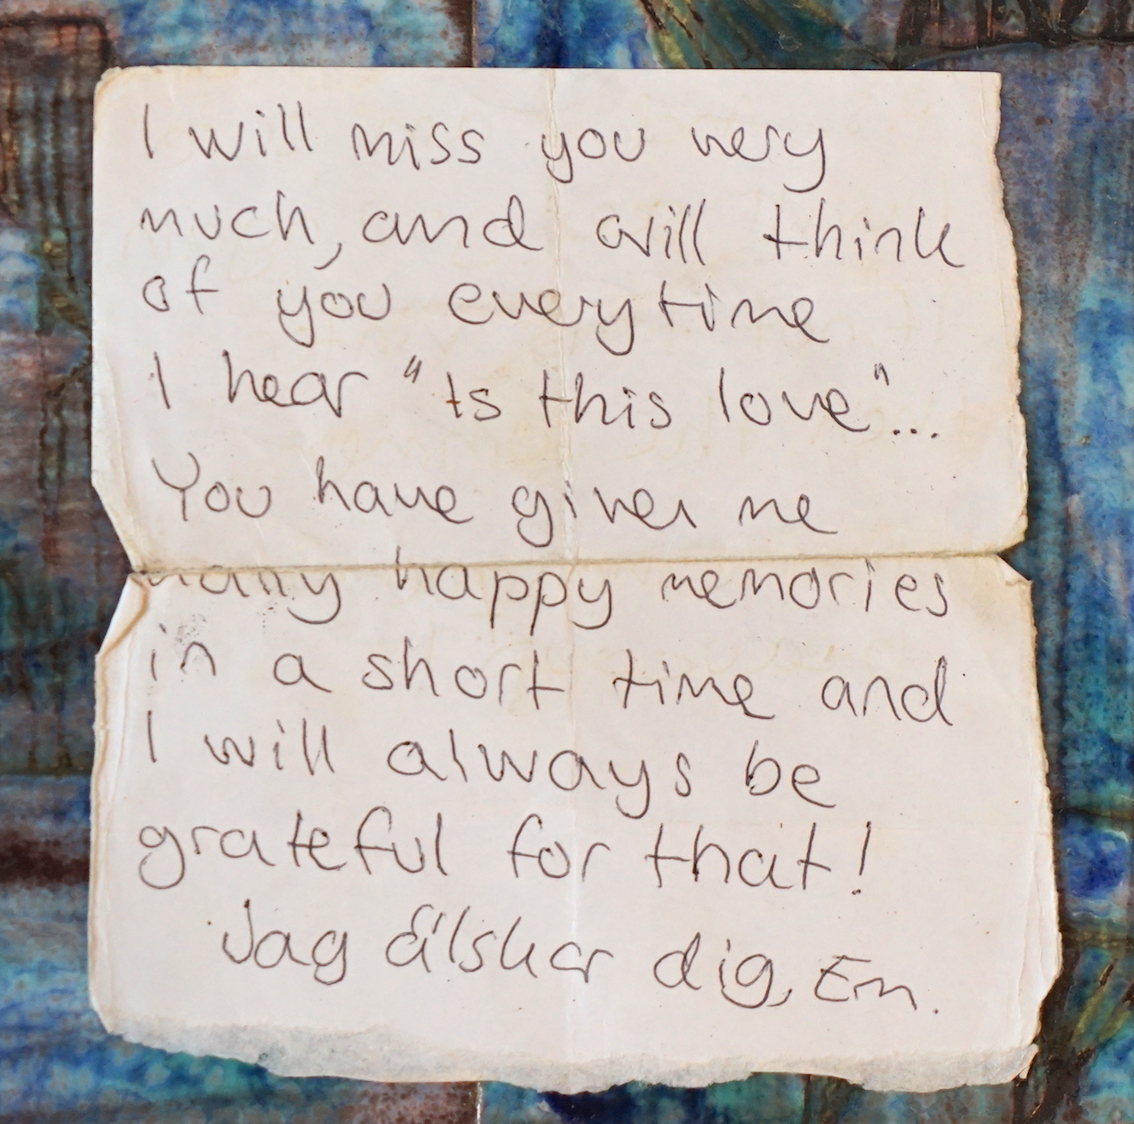 I will miss you very
much, and will think
of you everytime
I hear "Is this love"...
You have given me
many happy memories
in a short time and
I will always be
grateful for that!
Jag älskar dig, Em.